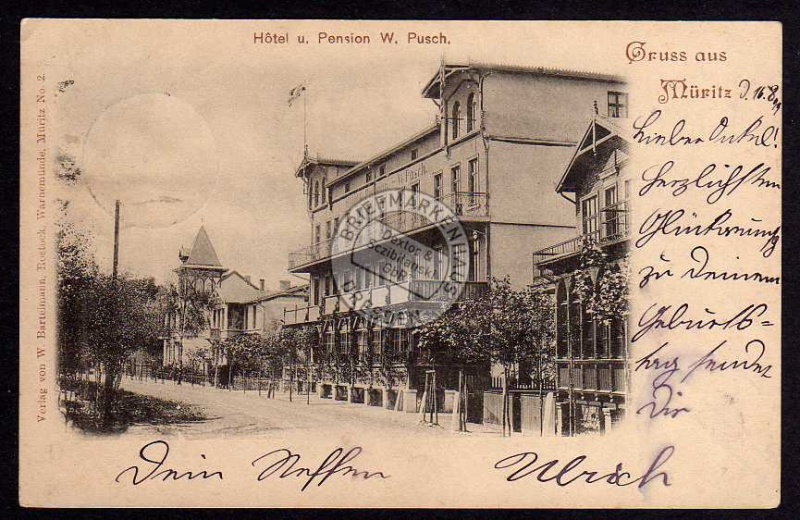 Hôtel u. Pension W. Pusch.
Gruss aus
Müritz d. 16.8.
Lieber Onkel!
Herzlichsten
Glückwunsch
zu Deinem
Geburts-
tag sendet
Dir
Dein Neffe Ulrich
Verlag von W. Bartelmann, Rostock, Warnemünde, Müritz No. 2.
Pusch
BRIEFMARKENHAUS
Dextor &
Sezibitenski
GbR
DRESDEN